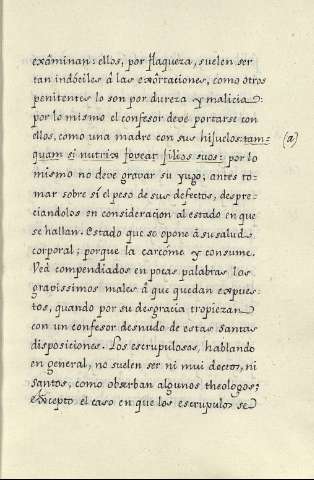 exâminan: ellos, por flaqueza, suelen ser
tan indóciles â las exôrtaciones, como otros
penitentes lo son por dureza y malicia:
por lo mismo el confesor debe portarse con
ellos, como una madre con sus hijuelos: tam- (a)
quam si nutrix foveat filios suos: por lo
mismo no deve gravar su yugo; antes to-
mar sobre sí el peso de sus defectos, despre-
ciandolos en consideracion al estado en que
se hallan. Estado que se opone â su salud
corporal; porque la carcóme y consume.
Ved compendiados en pocas palabras los
gravissimos males â que quedan expues-
tos, quando por su desgracia tropiezan
con un confesor desnudo de estas santas
disposiciones. Los escrupulosos, hablando
en general, no suelen ser ni mui doctos, ni
santos, como obserban algunos theologos;
excepto el caso en que los escrupulos se